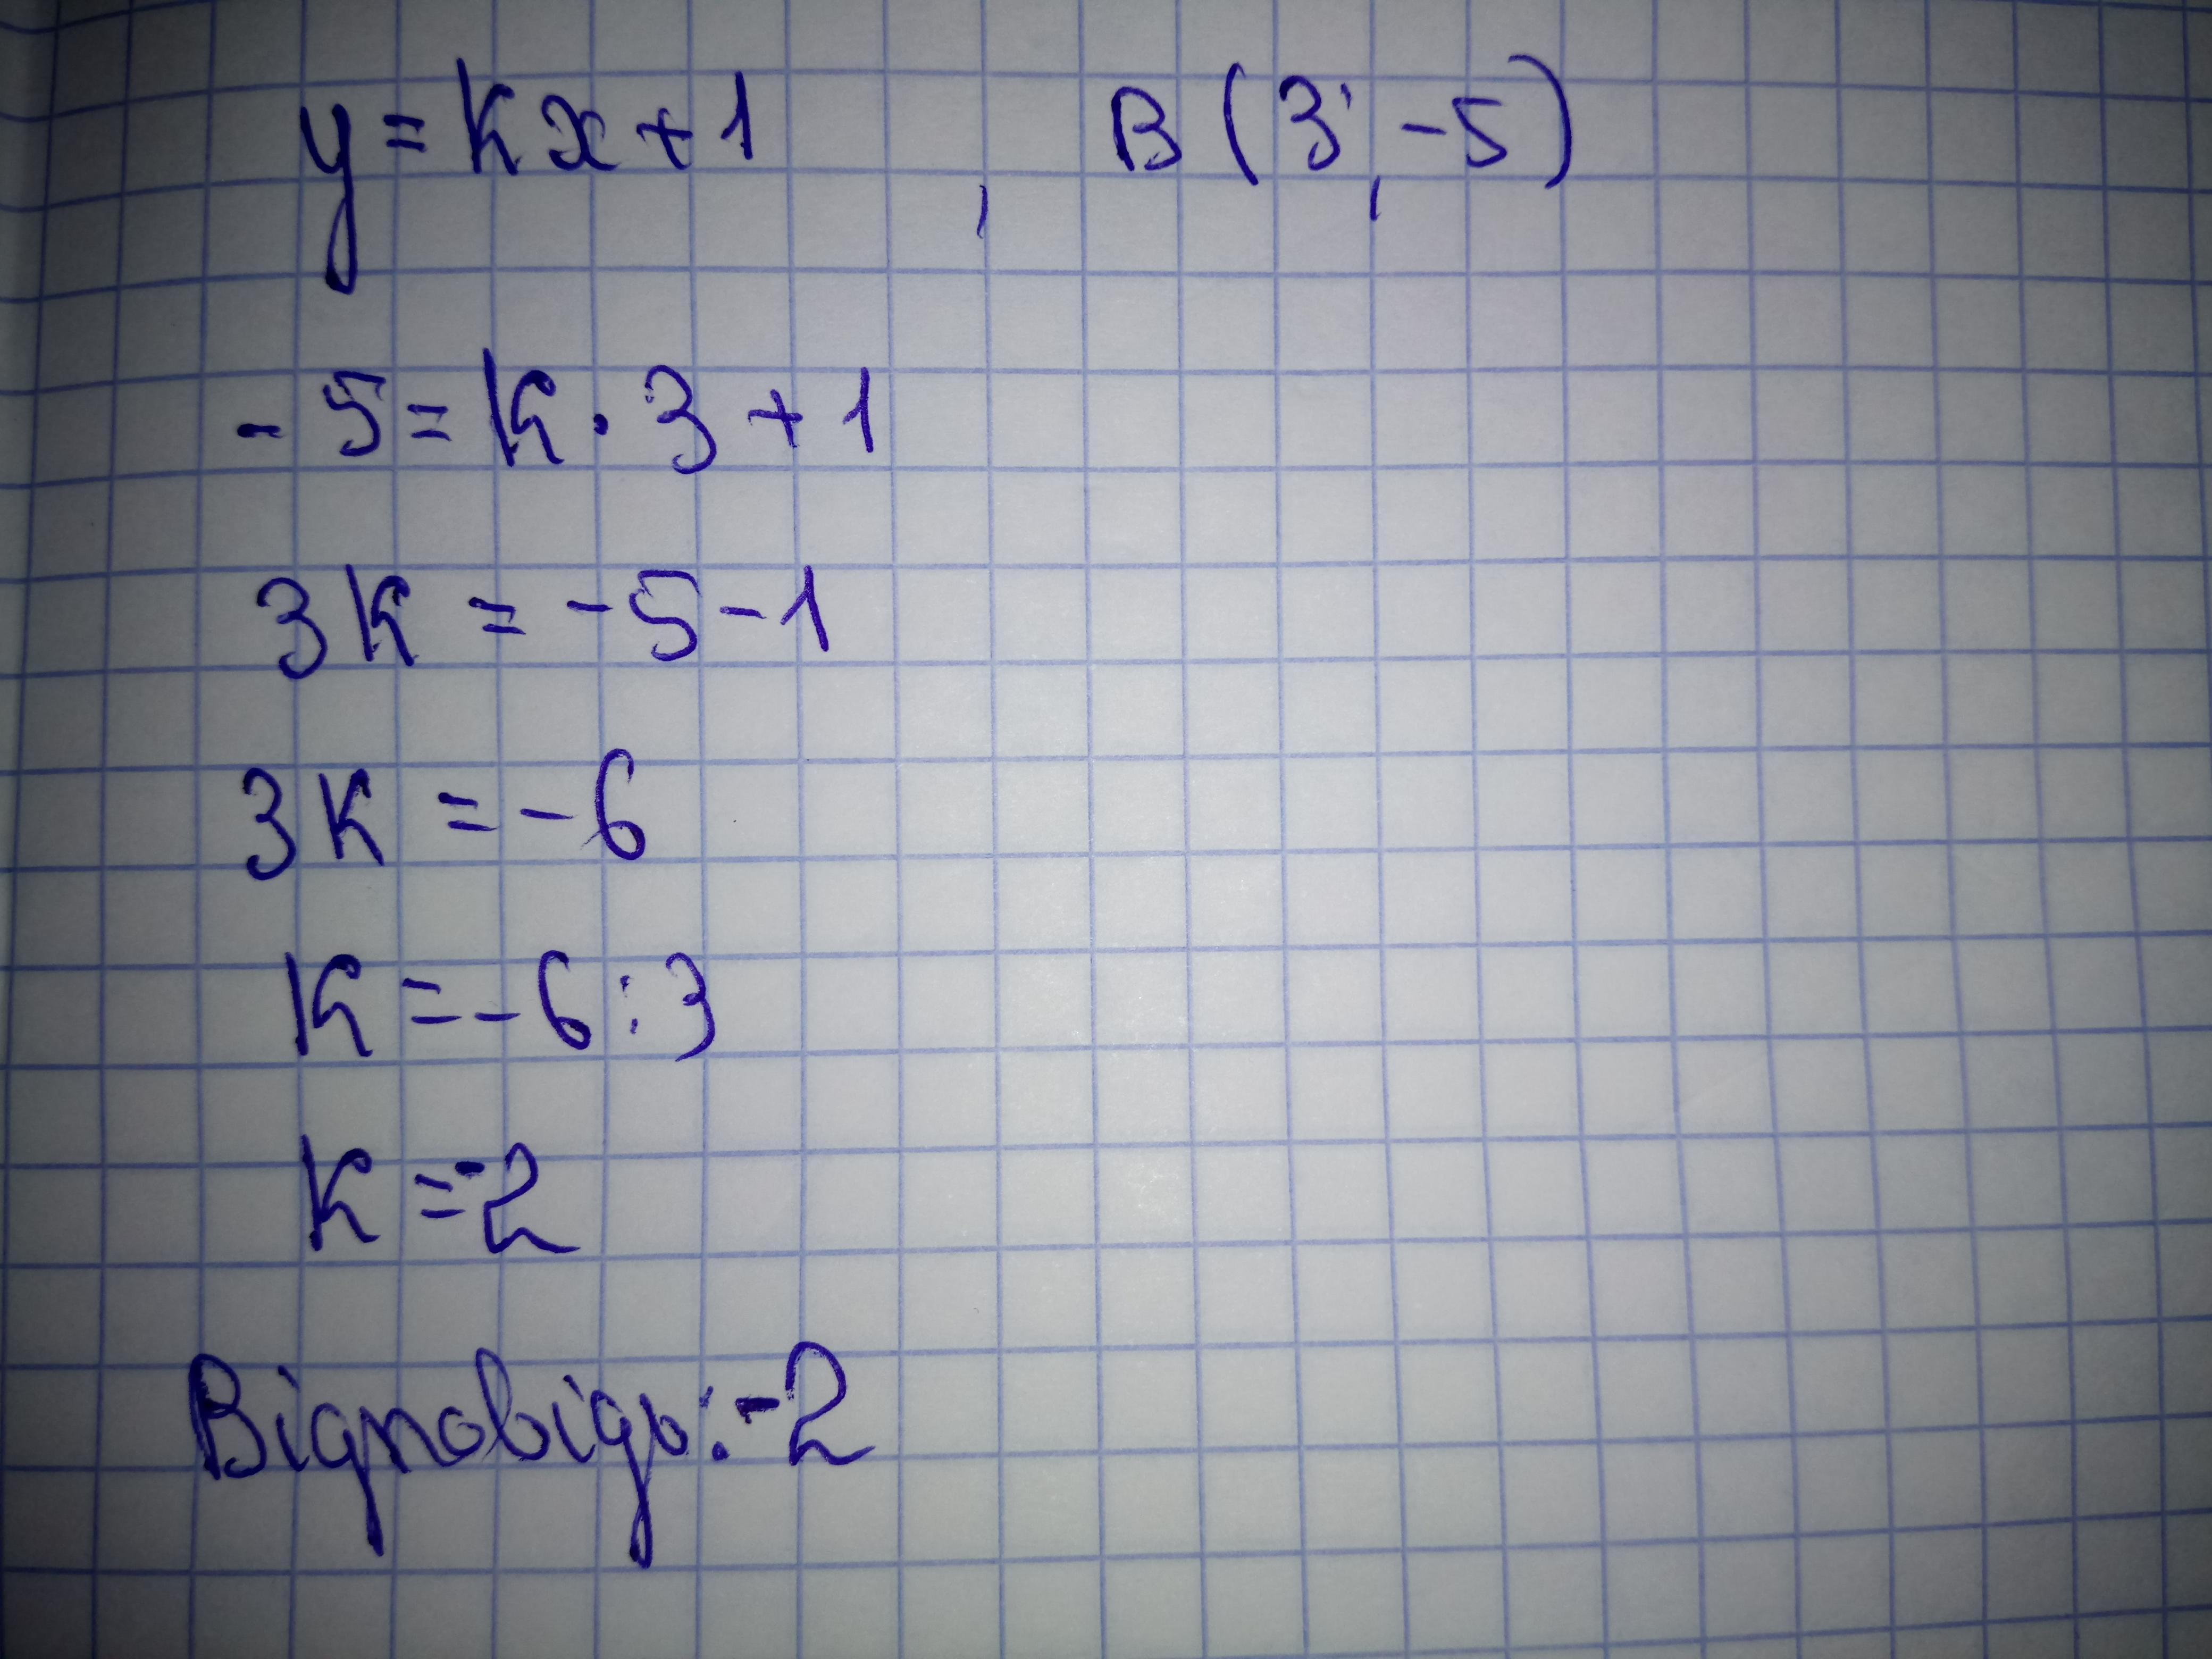 y = kx + 1 , B (3; -5)
- 5 = k · 3 + 1
3k = -5 - 1
3k = -6
k = -6 : 3
k = -2
Відповідь: -2